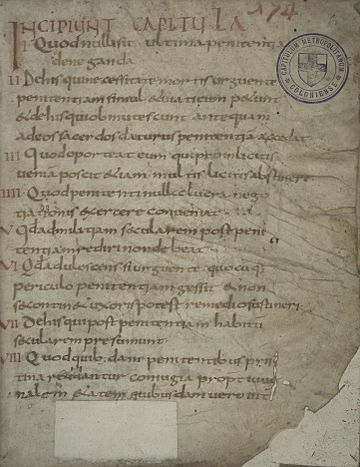 174
INCIPIUNT CAPITULA
I Quod nulla sit ultima penitentia
deneganda
II De his qui necessitate mortis urguente
penitentiam simul & viaticum
& de his qui obmutescunt antequam
ad eos sacerdos daturus penitentia accedat
III Quod oporteat eum qui pro inlicitis
venia poscit & iam multis licitis abstinere
IIII Quod penitenti nulla lucra nego
tiationis exercere conveniat
V Qd ad militiam secularem post peni
tentiam rediri non debeat
VI Qd adulescens si urguente quocuq;
periculo penitentiam gessit & non
se continet uxoris potest remedio sustineri
VII De his qui post penitentiam habitu
secularem presumunt
VIII Quod quibusdam penitentibus pris
tina coniugia propt
& quibusdam vero
CAPITULUM METROPOLITANUM COLONIENSE